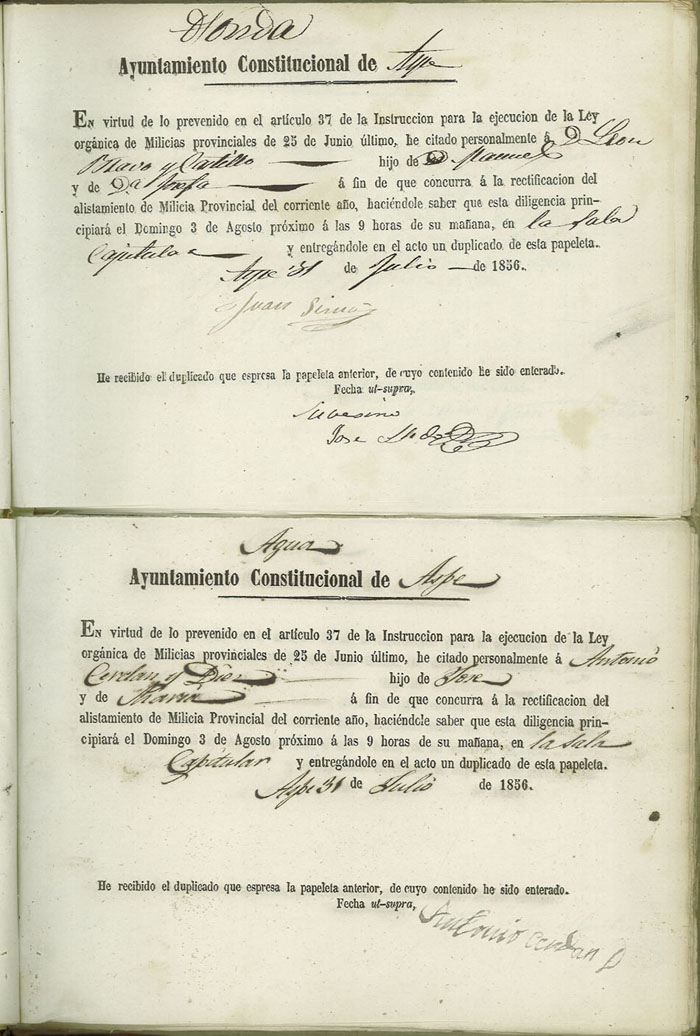 Honda
Ayuntamiento Constitucional de Aspe
En virtud de lo prevenido en el artículo 37 de la Instruccion para la ejecucion de la Ley
orgánica de Milicias provinciales de 25 de Junio último, he citado personalmente á D Leon
Bravo y Castillo hijo de D Manuel
y de Da Josefa á fin de que concurra á la rectificacion del
alistamiento de Milicia Provincial del corriente año, haciéndole saber que esta diligencia prin-
cipiará el Domingo 3 de Agosto próximo á las 9 horas de su mañana, en la Sala
Capitula y entregándole en el acto un duplicado de esta papeleta.
Aspe 31 de Julio de 1856.
Juan
He recibido el duplicado que espresa la papeleta anterior, de cuyo contenido he sido enterado.
Fecha ut-supra,
Su vesino
Jose
Agua
Ayuntamiento Constitucional de Aspe
En virtud de lo prevenido en el artículo 37 de la Instruccion para la ejecucion de la Ley
orgánica de Milicias provinciales de 25 de Junio último, he citado personalmente á Antonio
Cerdan y Diez hijo de Jose
y de Maria á fin de que concurra á la rectificacion del
alistamiento de Milicia Provincial del corriente año, haciéndole saber que esta diligencia prin-
cipiará el Domingo 3 de Agosto próximo á las 9 horas de su mañana, en la Sala
Capitular y entregándole en el acto un duplicado de esta papeleta.
Aspe 31 de Julio de 1856.
He recibido el duplicado que espresa la papeleta anterior, de cuyo contenido he sido enterado.
Fecha ut-supra,
Antonio Cerdan D